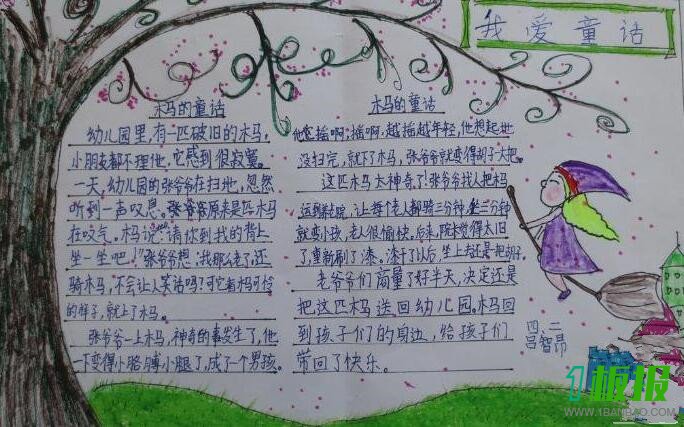 我爱童话
木马的童话
幼儿园里,有一匹破旧的木马,
小朋友都不理他,它感到很寂寞。
一天,幼儿园的张爷爷在扫地,忽然
听到一声叹息。张爷爷原来是匹木马
在叹气。木马说:请你到我的背上
坐一坐吧!张爷爷想:我那么老了,还
骑木马,不会让人笑话吗?可它看木马可怜
的样子,就上了木马。
张爷爷一上木马,神奇的事发生了,他
一下变得小胳膊小腿了,成了一个男孩。
木马的童话
他摇啊,摇啊,越摇越年轻,他想起地
没扫完,就下了木马,张爷爷就变得胡子大把。
这匹木马太神奇了!张爷爷找人把木马
运到院,让每个老人都骑三分钟,坐三分钟
就变小孩,老人很愉快。后来,院觉得太旧
了,重新刷了漆。漆干了以后,坐上去还是把胡子。
老爷爷们商量了好半天,决定还是
把这匹木马送回幼儿园。木马回
到孩子们的身边,给孩子们
带回了快乐。
四、二
吕智昂
1板报
WWW.1BANBAO.COM